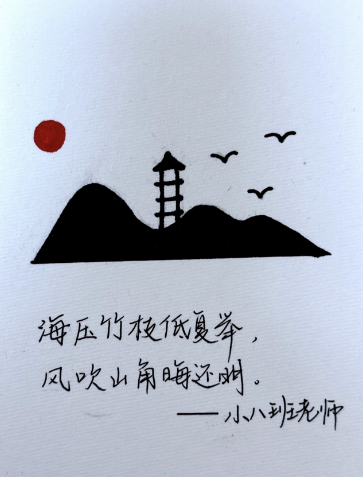 海压竹枝低复举，
风吹山角晦还明。
——小八班老师